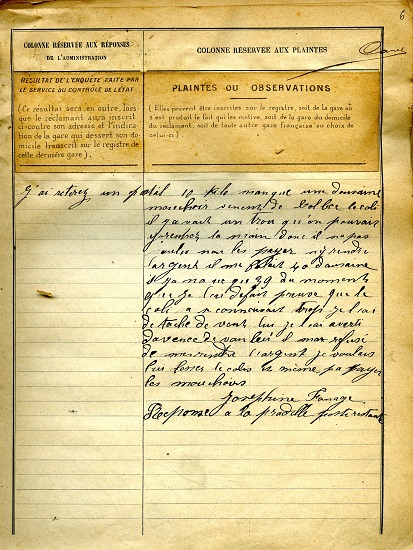 6
COLONNE RÉSERVÉE AUX RÉPONSES
DE L'ADMINISTRATION
COLONNE RÉSERVÉE AUX PLAINTES
RÉSULTAT DE L'ENQUÊTE FAITE PAR
LE SERVICE DU CONTRÔLE DE L'ÉTAT
(Ce résultat sera, en outre, lors-
que le réclamant aura inscrit
ci-contre son adresse et l'indica-
tion de la gare qui dessert son do-
micile transcrit sur le registre de
cette dernière gare).
PLAINTES OU OBSERVATIONS
(Elles peuvent être inscrites sur le registre, soit de la gare où
s'est produit le fait qui les motive, soit de la gare du domicile
du réclamant, soit de toute autre gare française au choix de
celui-ci)
J'ai retirez un postal 10 kilo manque une dousaine
mouchoir venent de Bolbec le coli
il y avait un trou qu'on pouvais
y rentrez la main donc il na pas
voulu me les payer ny rendre
l'argent il me falait 40 dousaine
il y a na que 39 du moment
que je l'ai defait preuve que le
coli a
de tache de vent lui je l'ai averti
davence de van lui il mas refusé
de me rendre l'argent je voulais
lui lesser le colis et même pa payer
les mouchoirs
Josephine
Response a la pradelle poste restante